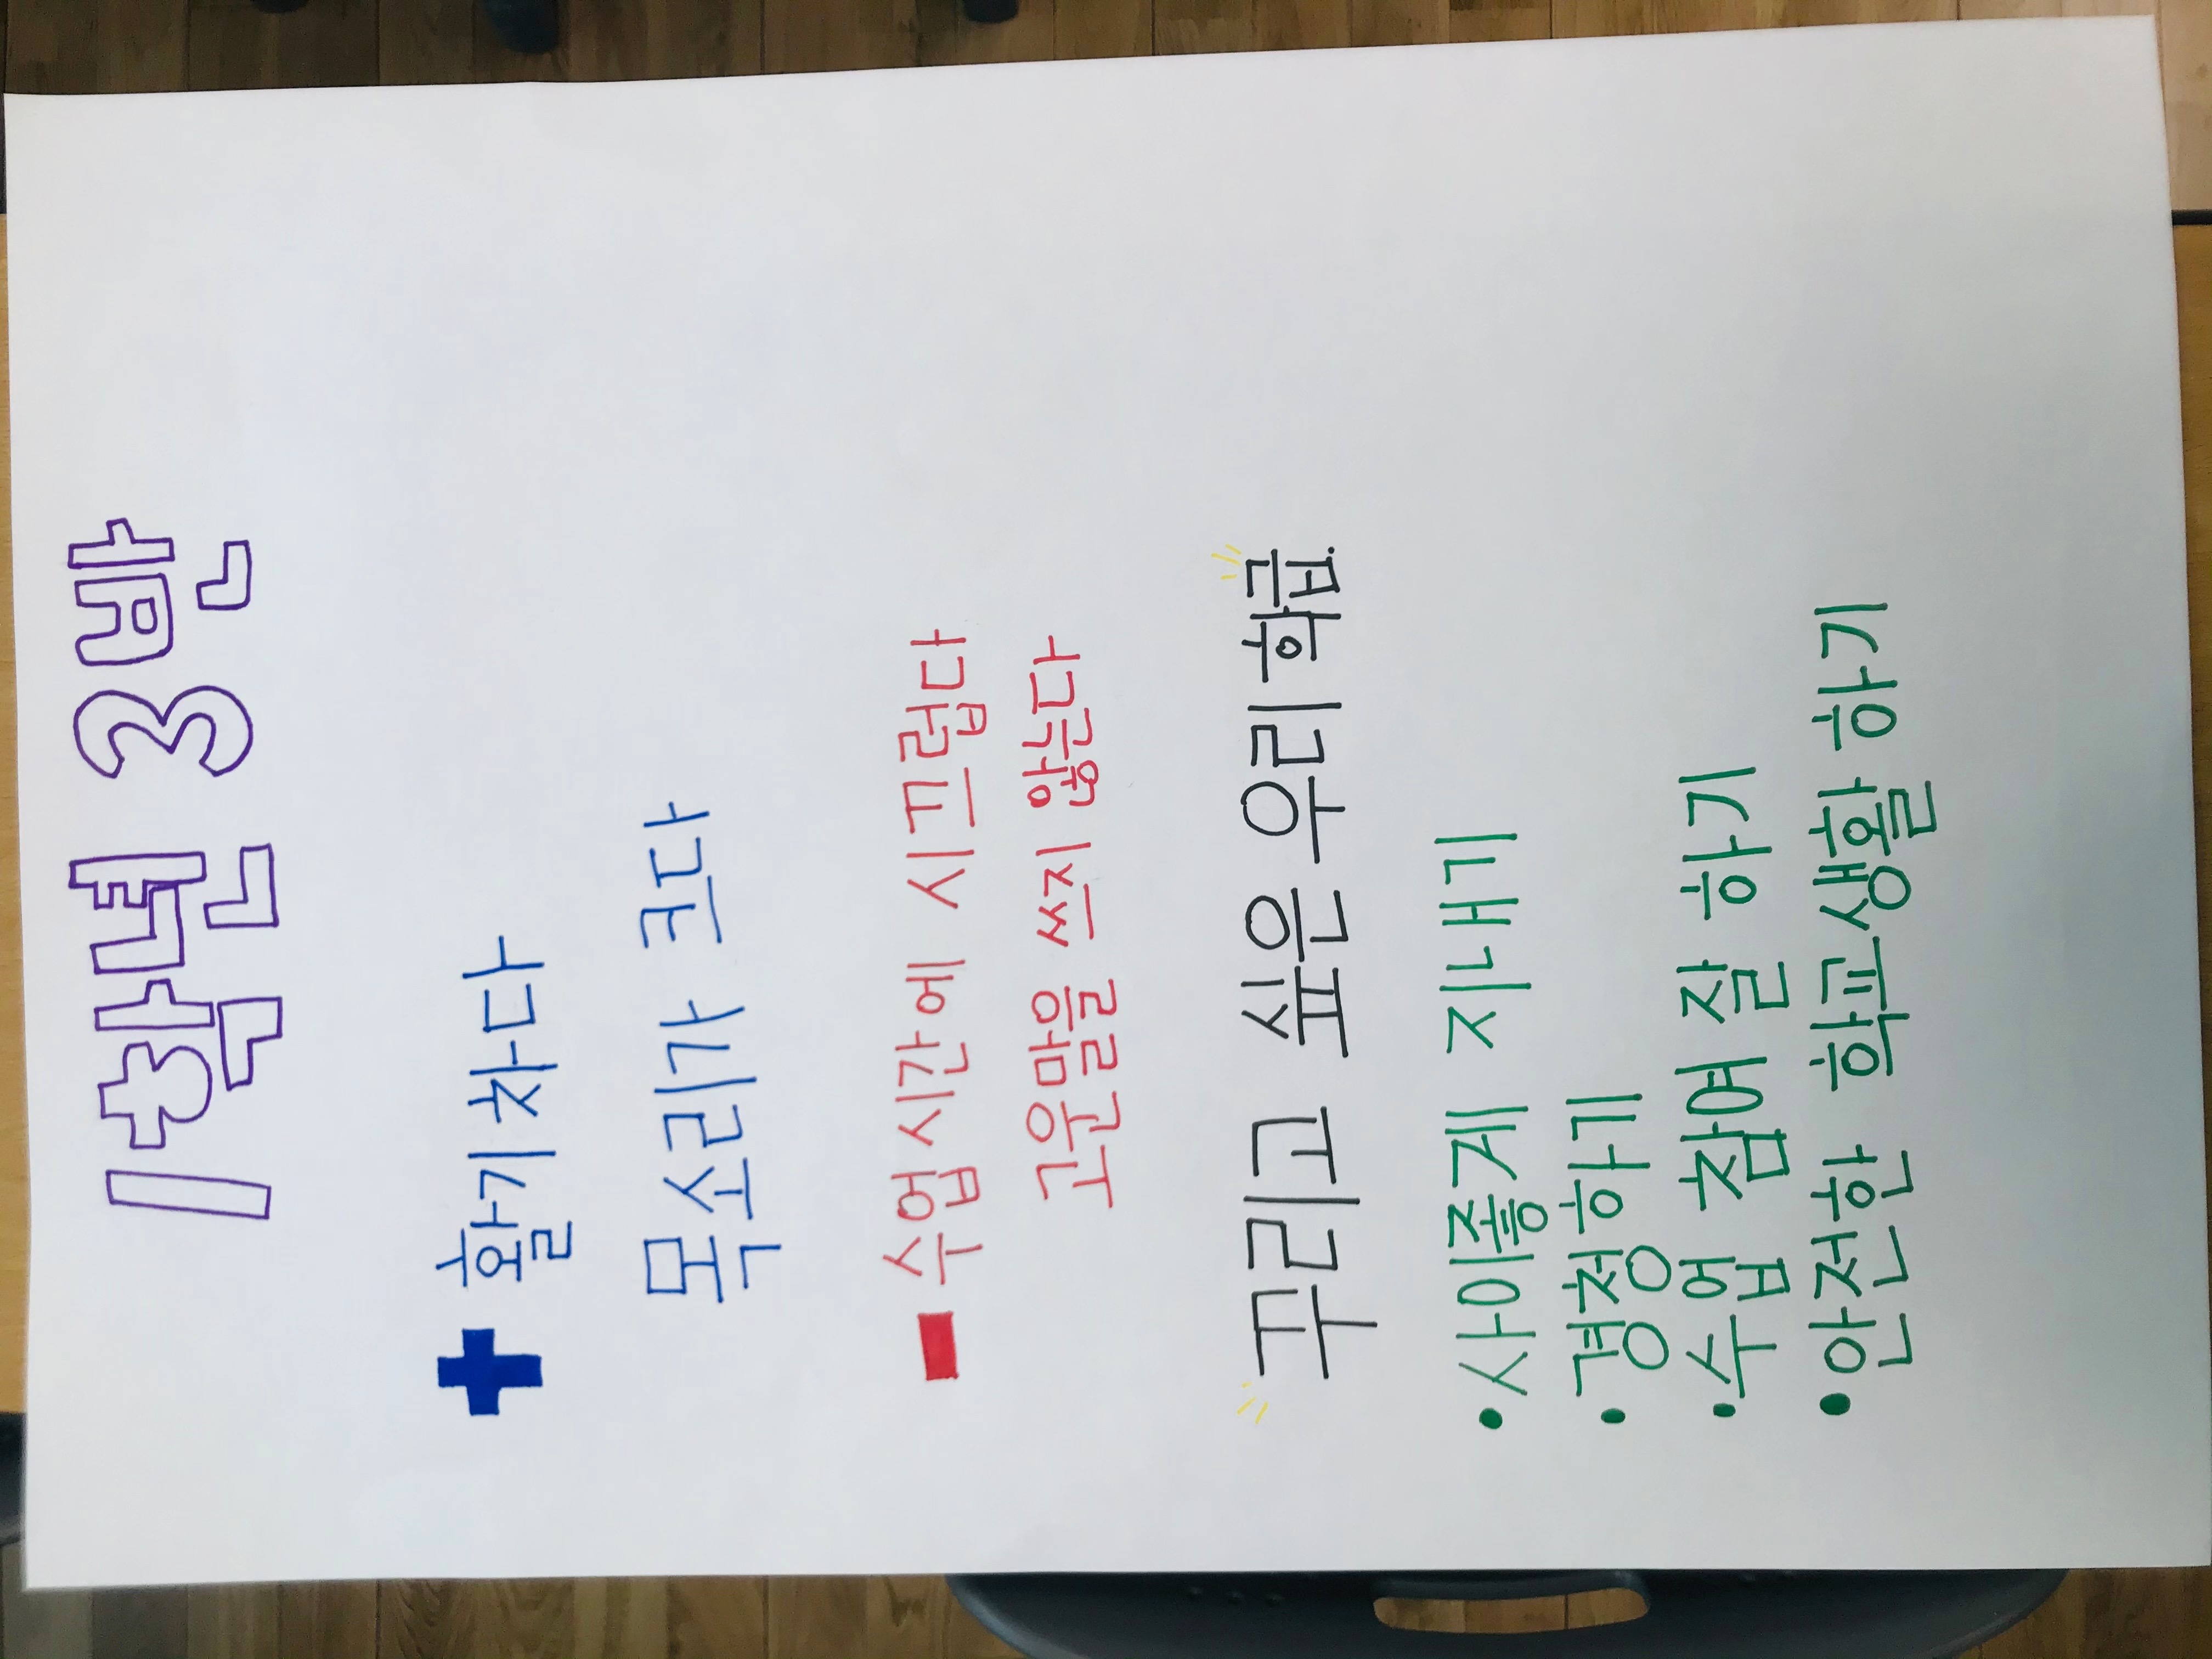 1학년 3반
+ 활기차다
목소리가 크다
- 수업시간에 시끄럽다
고운말을 쓰지 않는다
꾸리고 싶은 우리 학급.
• 사이좋게 지내기
• 경청하기
• 수업 참여 잘 하기
• 안전한 학교생활 하기